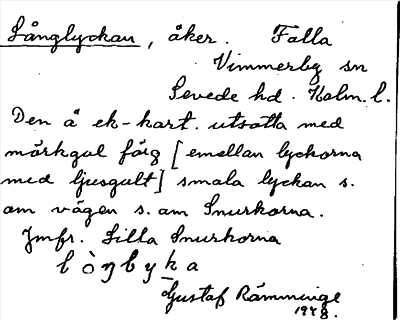 Långlyckan, åker. Falla
Vimmerby sn
Sevede hd. Kalm. l.
Den å ek-kart. utsatta med
mörkgul färg [emellan lyckorna
med ljusgult] smala lyckan s.
om vägen s. om Snurkorna.
Jmfr. Lilla Snurkorna
lòŋlyka
Gustaf Rämminge
1948.